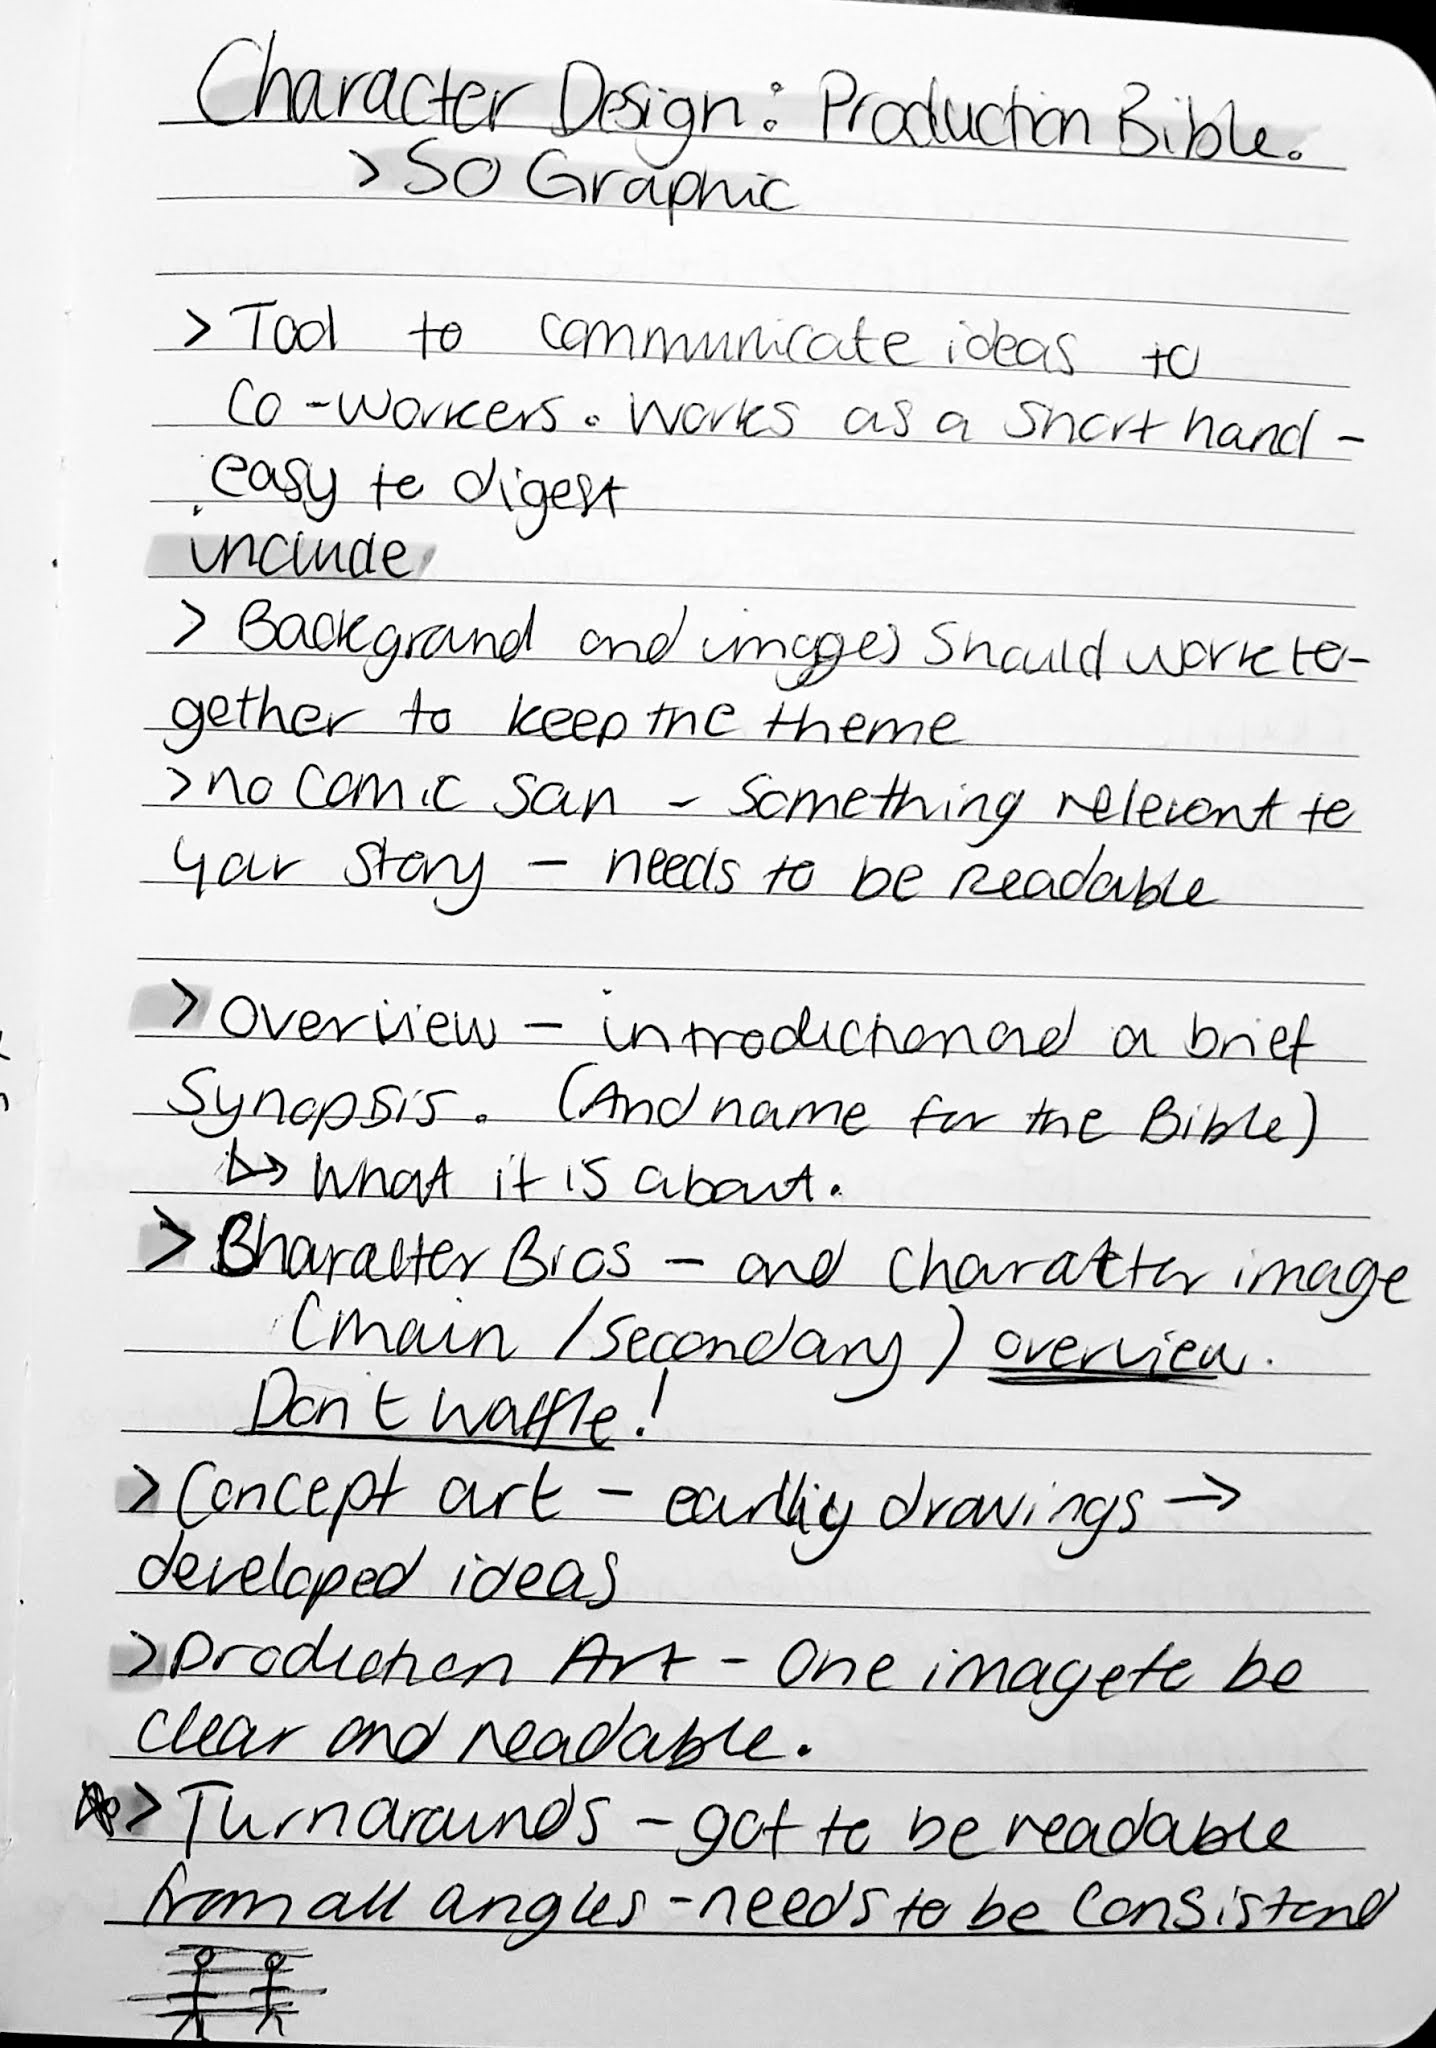 Character Design: Production Bible.
> SO Graphic
> Tool to communicate ideas to
Co-workers. Works as a short hand -
easy to digest
include
> Background and images should work to-
gether to keep the theme
> no comic san - something relevent to
your story - needs to be readable
> Overview - introduction and a brief
Synopsis. (And name for the Bible)
↳ What it is about.
> Character Bios - and character image
(main / secondary) overview.
Don't waffle!
> Concept art - early drawings →
developed ideas
> Production Art - One image to be
clear and readable.
> Turnarounds - got to be readable
from all angles - needs to be consistend